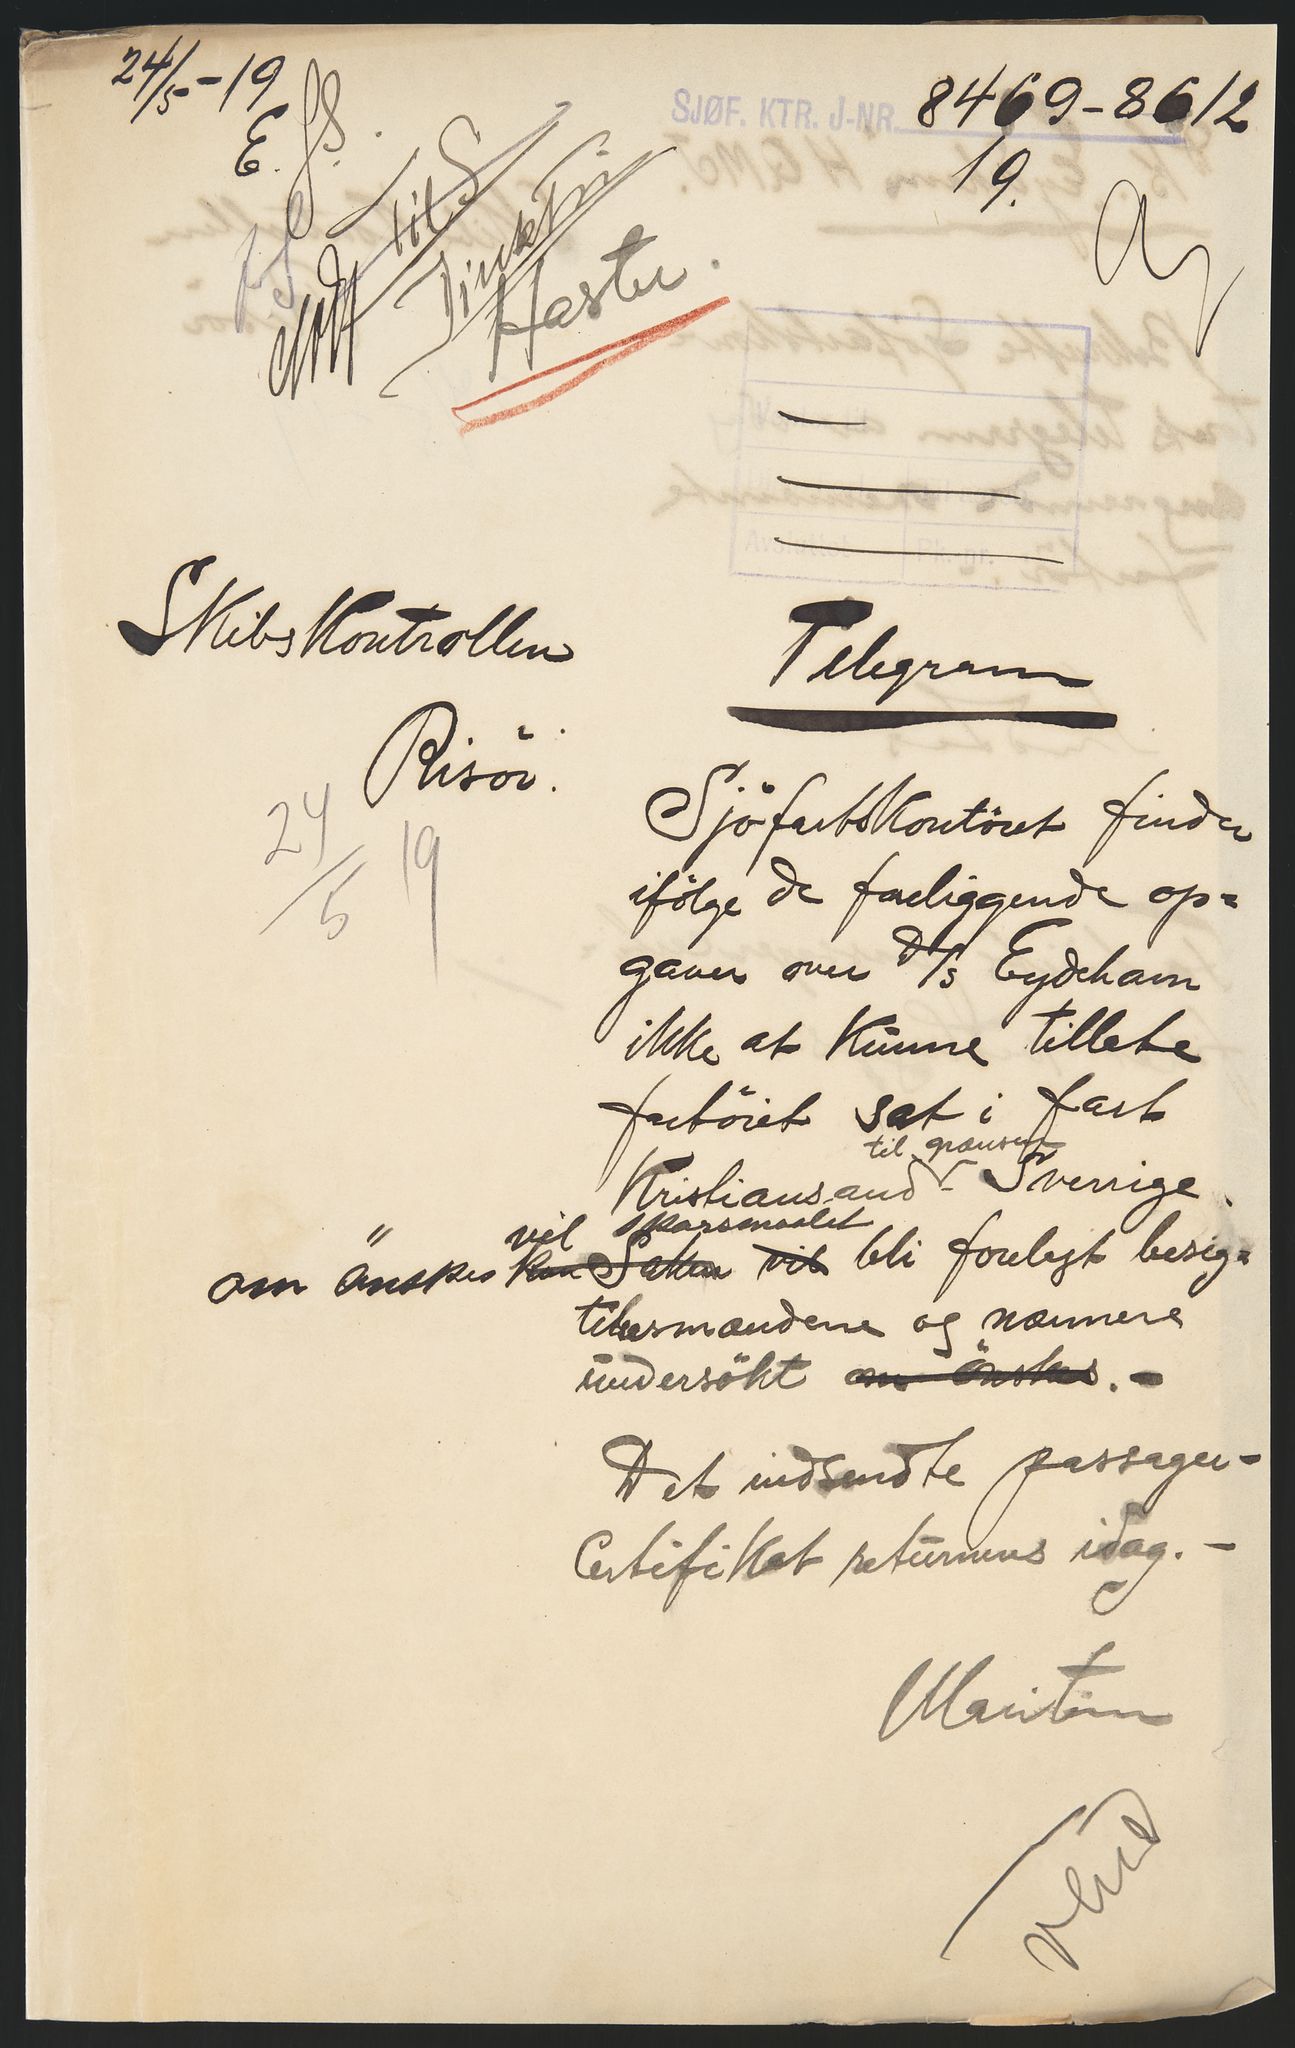 24/5-19
E.
SJØF. KTR. J-NR. 8469-8612
19.
Notf til S
Haster.
SkibsKontrollen
Risör.
24/5 19
Telegram
SjöfartsKontöret finder
ifölge de foreliggende op=
gaver over D/S Eydehavn
ikke at Kunne tillate
fartöiet sat i fart
til grænsen
Kristiansand - Sverrige.
vil spørsmaalet
om önskes kan Saken vil bli forelagt besig=
telsesmændene og nærmere
undersökt om önskes. -
Det indsendte passager-
Certifikat returneres idag. -
Maritim